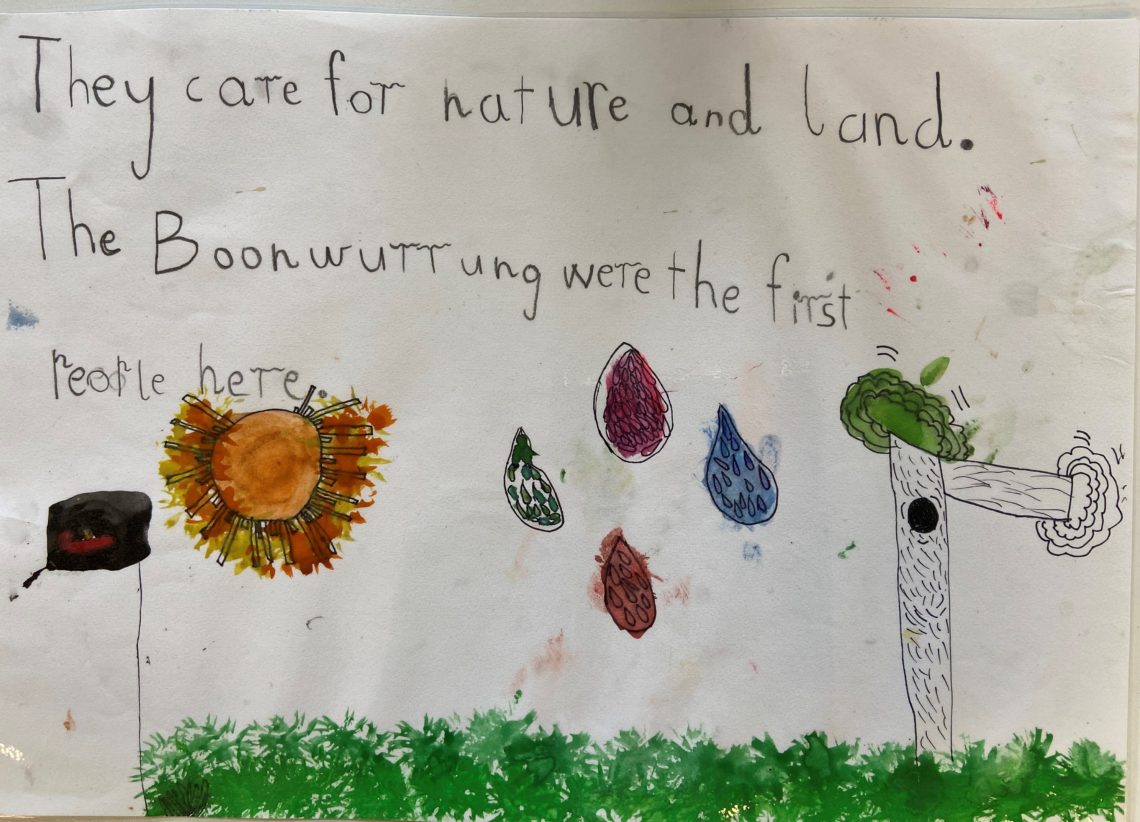 They care for nature and land.
The Boonwurrung were the first
people here.